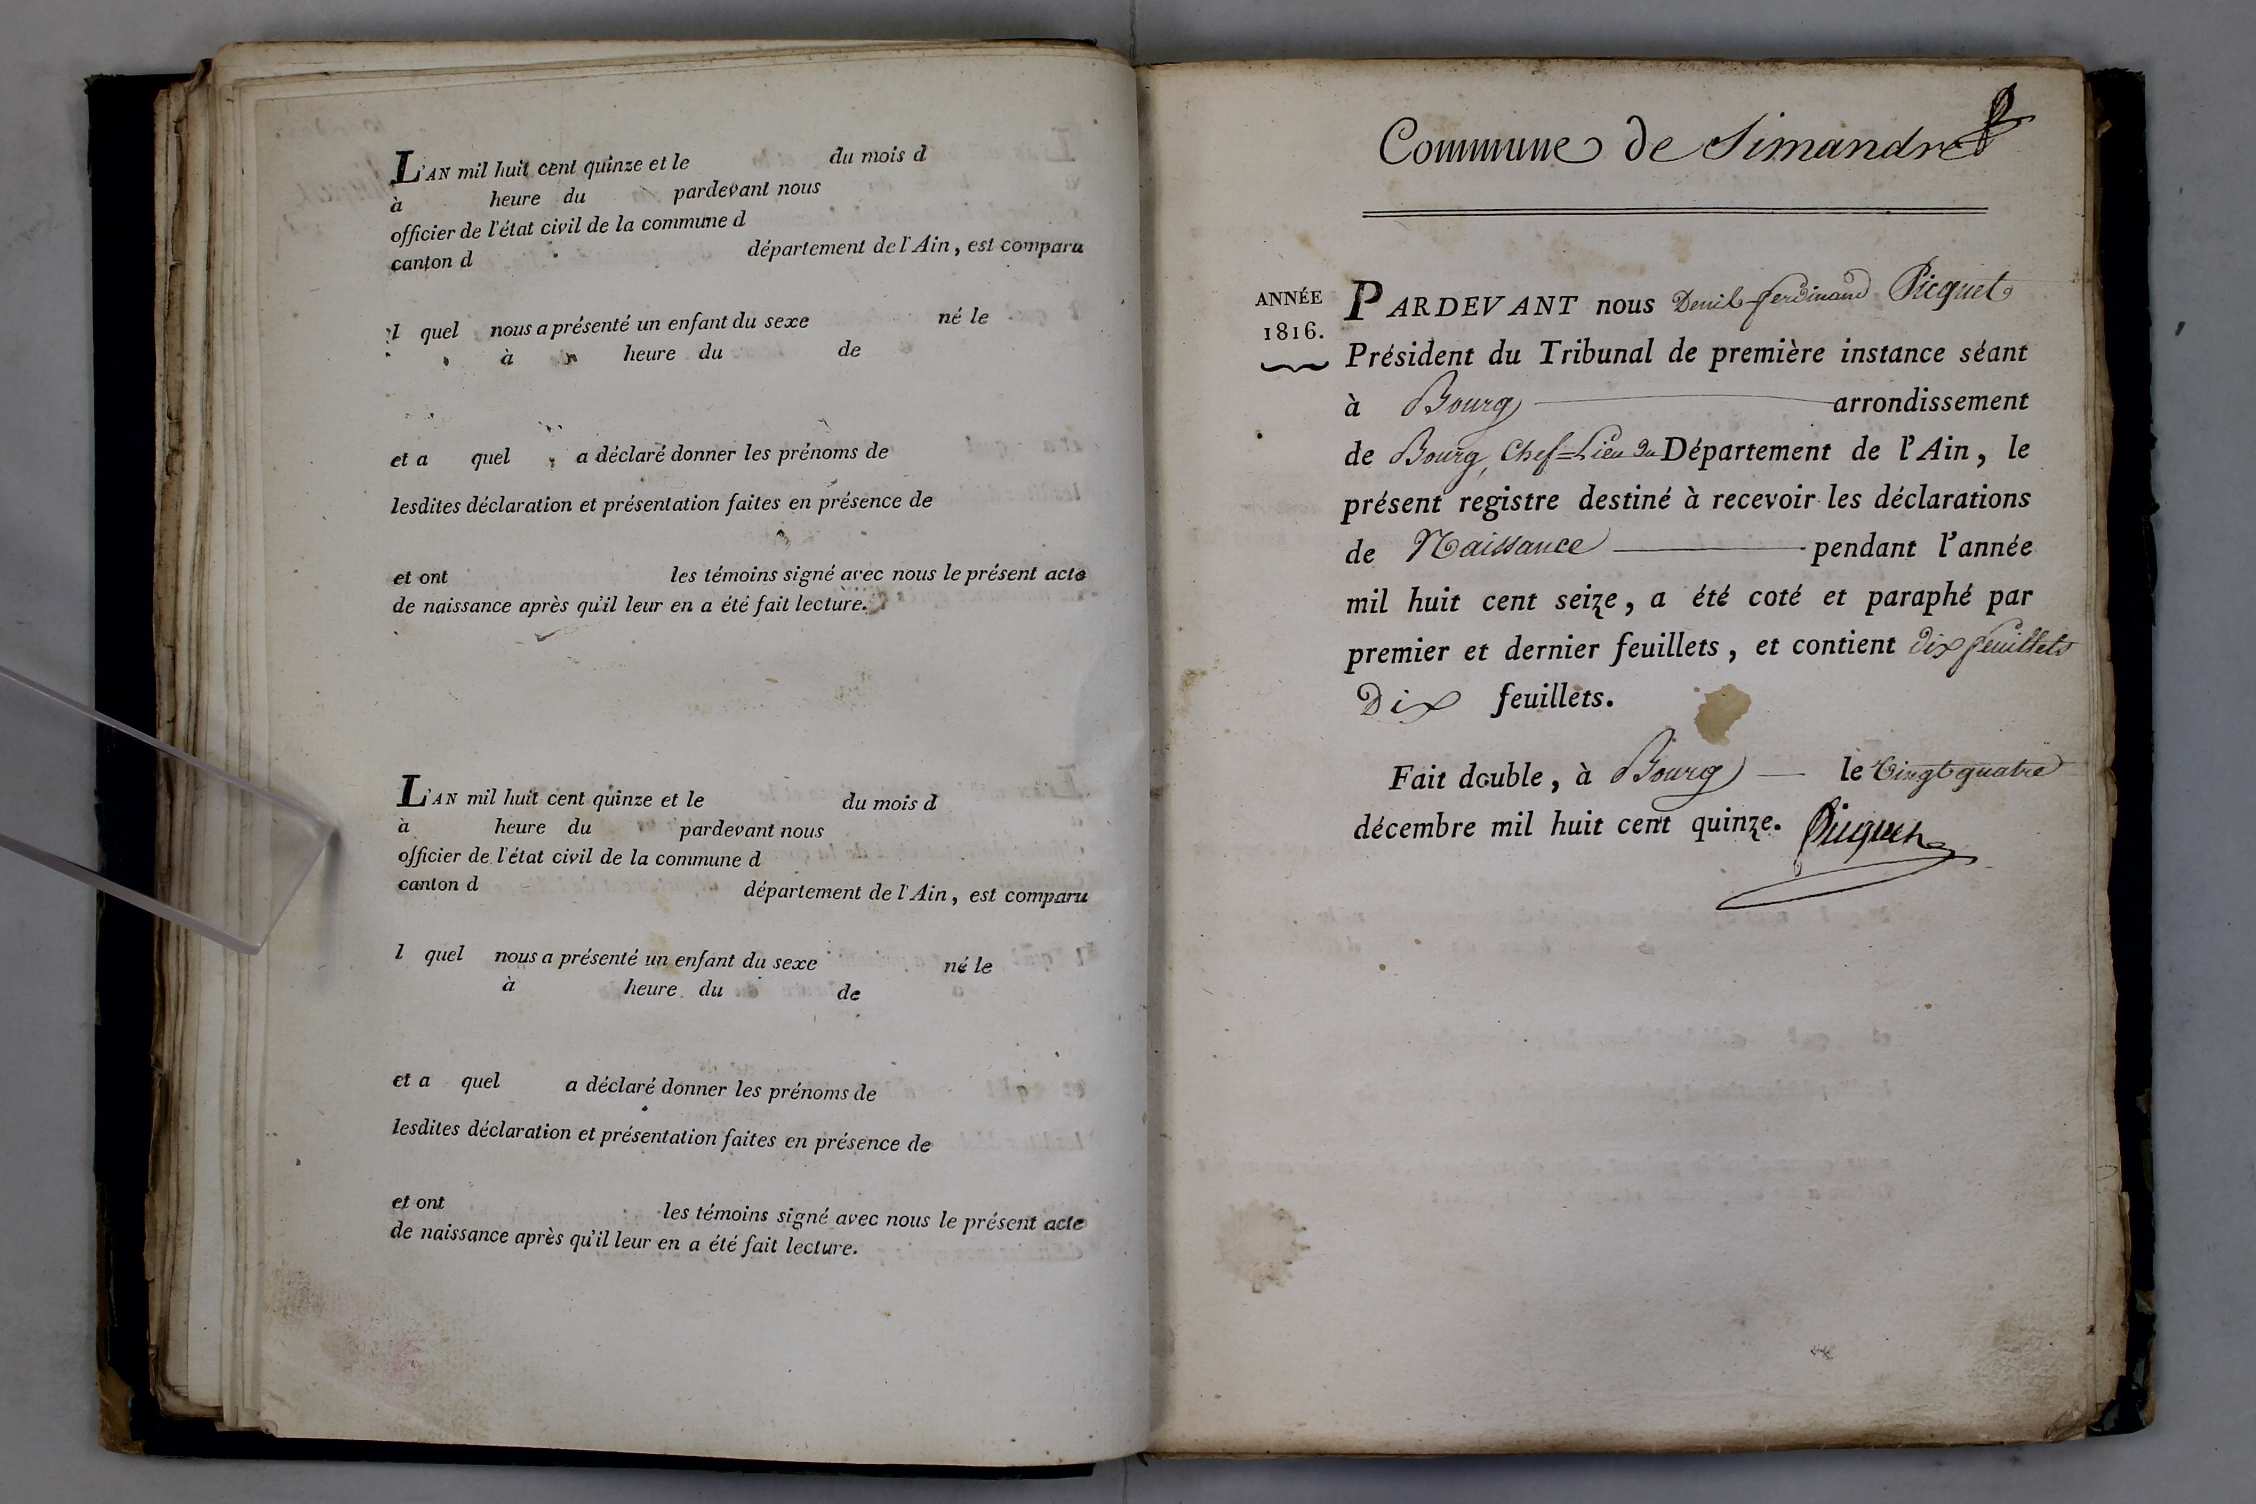 L'AN mil huit cent quinze et le du mois d
à heure du pardevant nous
officier de l'état civil de la commune d
canton d département de l'Ain, est comparu
l quel nous a présenté un enfant du sexe né le
à heure du de
et a quel a déclaré donner les prénoms de
lesdites déclaration et présentation faites en présence de
et ont les témoins signé avec nous le présent acte
de naissance après qu'il leur en a été fait lecture.
L'AN mil huit cent quinze et le du mois d
à heure du pardevant nous
officier de l'état civil de la commune d
canton d département de l'Ain, est comparu
l quel nous a présenté un enfant du sexe né le
à heure du de
et a quel a déclaré donner les prénoms de
lesdites déclaration et présentation faites en présence de
et ont les témoins signé avec nous le présent acte
de naissance après qu'il leur en a été fait lecture.
Commune de Simandre
ANNÉE
1816.
PARDEVANT nous Denis ferdinand Picquet
Président du Tribunal de première instance séant
à Bourg arrondissement
de Bourg, Chef=Lieu du Département de l'Ain, le
présent registre destiné à recevoir les déclarations
de Naissance pendant l'année
mil huit cent seize, a été coté et paraphé par
premier et dernier feuillets, et contient dix feuillets
Dix feuillets.
Fait double, à Bourg — le Vingt quatre
décembre mil huit cent quinze. Picquet